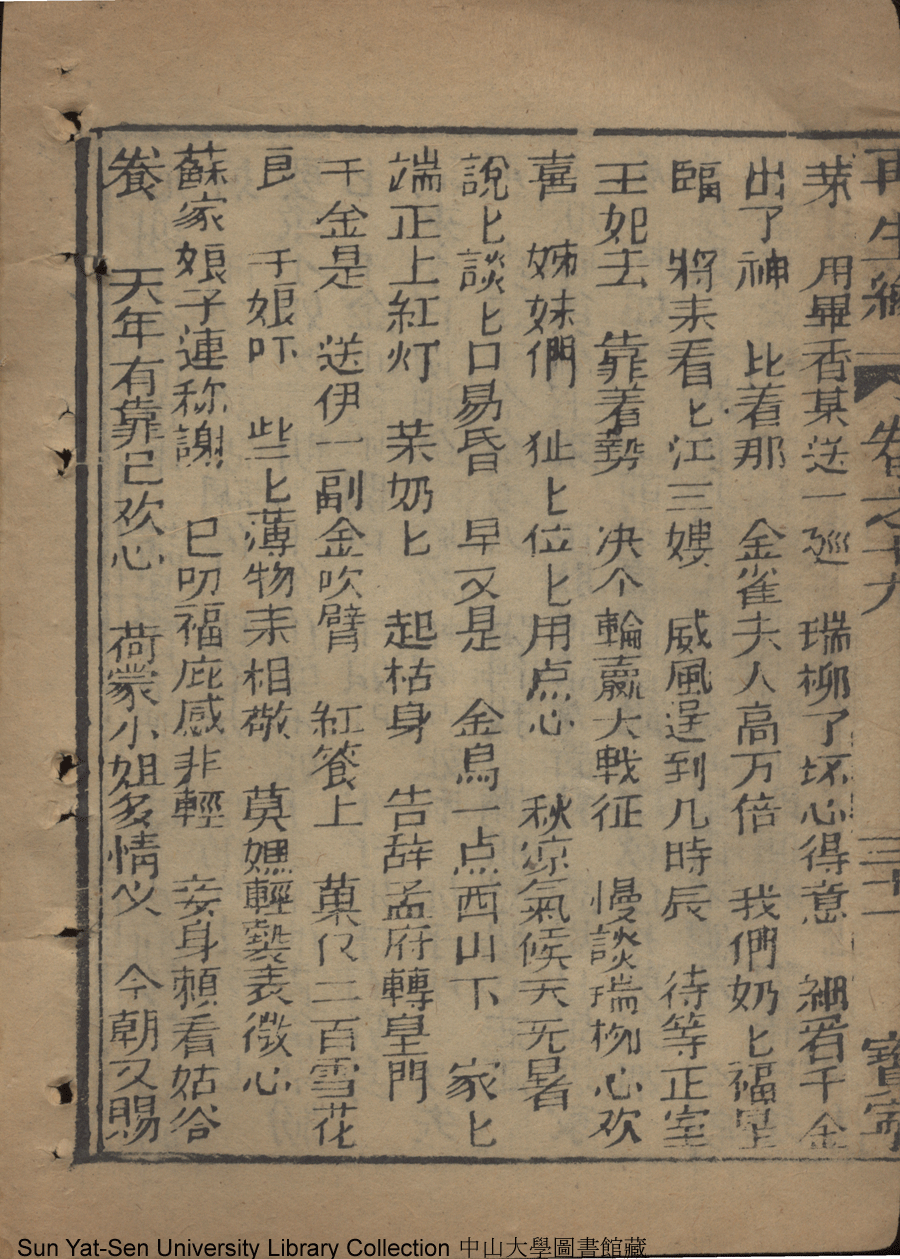 再生緣 卷之十九 三十一 寶寧
茉 用畢香茶送一巡 瑞柳了坏心得意 細看千金
出了神 比着那 金雀夫人高万倍 我們奶匕福星
臨 將耒看匕江三嫂 威風逞到几時辰 待等正室
王妃去 靠着勢 决个輪贏大戦征 慢談瑞柳心欢
喜 姊妹們 徃匕位匕用点心 秋凉氣候天旡暑
說匕談匕口易昏 早又是 金鳥一点西山下 家匕
端正上紅灯 茉奶匕 起枯身 告辞孟府轉皇門
千金是 送伊一副金吹臂 紅簽上 菓仪二百雪花
艮 干娘吓 些匕薄物耒相敬 莫嫌輕褻表微心
蘇家娘子連称謝 巳叨福庇感非輕 妾身頼看姑爷
養 天年有靠已欢心 荷蒙小姐多情义 今朝又賜
Sun Yat-Sen University Library Collection 中山大學圖書館藏